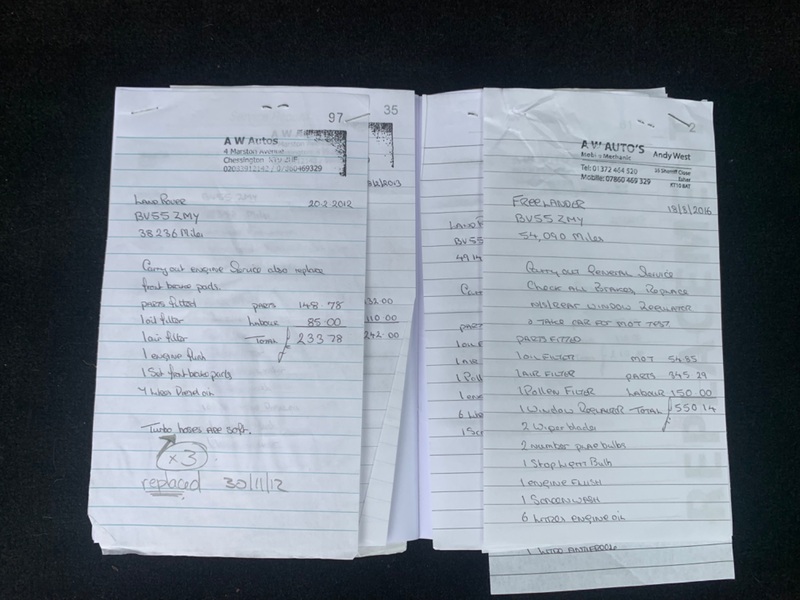 97
A W Autos
4 Marston Avenue
Chessington
Land Rover 20-2-2012
BV55 ZMY
38236 Miles
Carry out engine Service also replace
front brake pads.
parts fitted parts 148.78
1 oil filter labour 85.00
1 air filter Total £ 233 78
1 engine flush
1 Set front brake pads
oil
Turbo hoses are soft.
x3
replaced 30/11/12
35
2013
32.00
110.00
242.00
BV55
2
A W AUTO'S
Mobile Mechanic Andy West
Tel: 01372 464 520
Mobile: 07860 469 329
Esher
KT10 8AT
FREELANDER 18/8/2016
BV55 ZMY
54,090 Miles
Carry out General Service
Check All Brakes Replace
Rear Window Regulator
& Take Car for MOT Test
Parts Fitted
1 Oil Filter MOT 54.85
1 Air Filter Parts 345 29
1 Pollen Filter Labour 150.00
1 Window Regulator Total £550 14
2 Wiper blades
2 Number plate bulbs
1 Stop light Bulb
1 engine flush
1 Screenwash
6 Litres engine oil
1 Litre Antifreeze